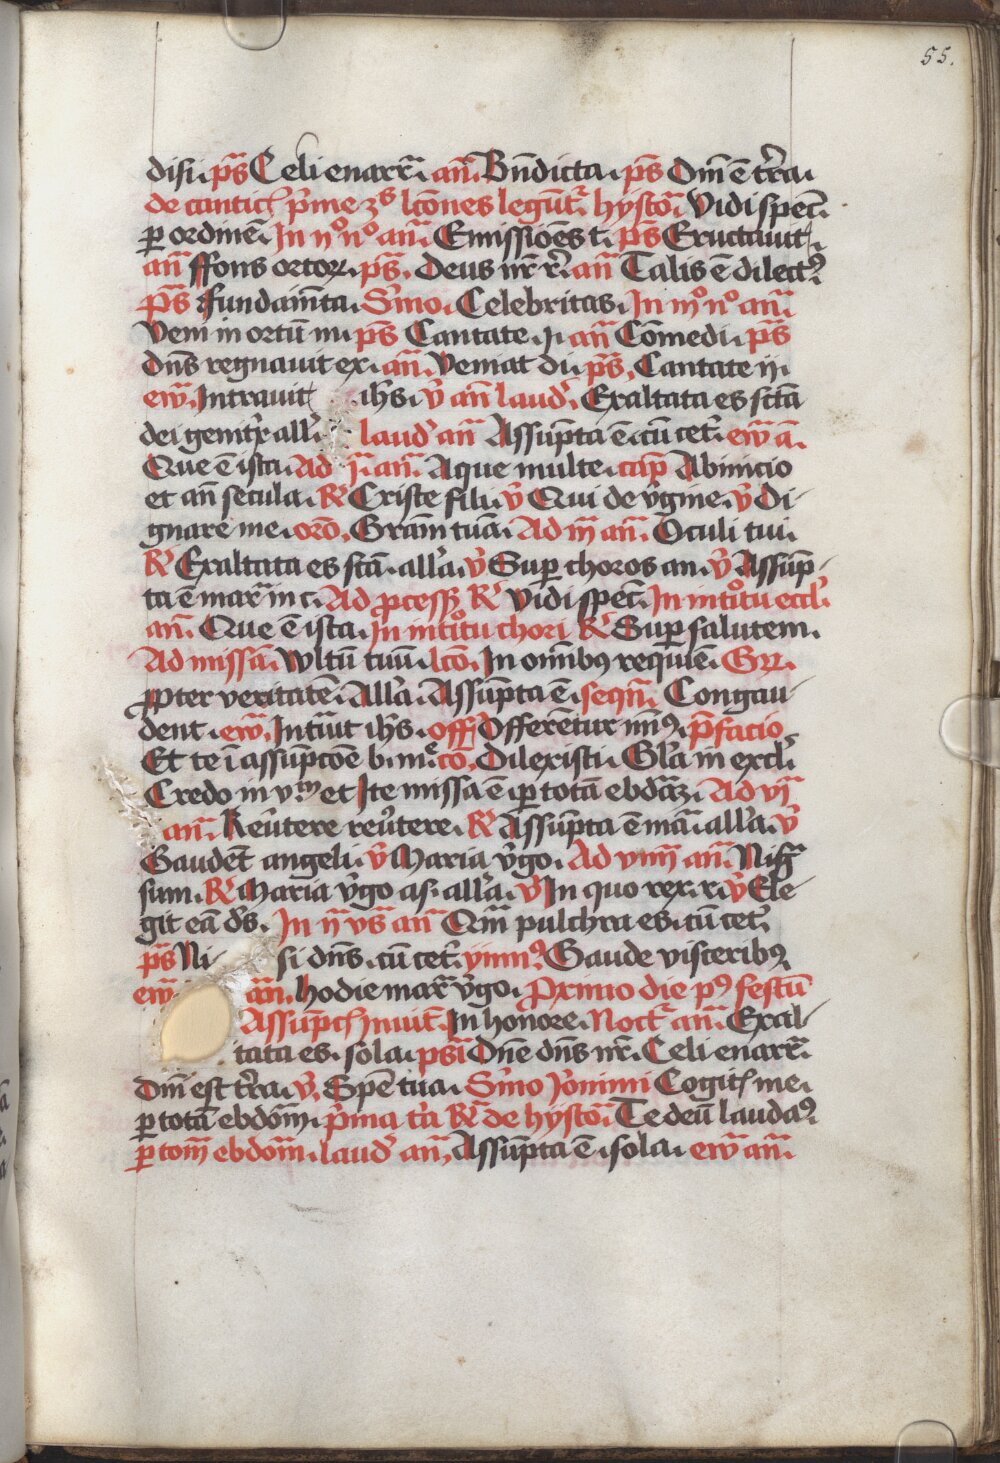 55.
disi. ps̄ Celi enarr̄. an̄. Bn̄dicta. ps̄ Dn̄i ē tr̄a.
de cantic̄ p̄me ʒs lc̄ones legūt᷑. hystō. Vidi spec̄.
ꝑ ordinē. In ijo no an̄. Emissiōes t. ps̄ Eructauit.
an̄ ffons ortoꝝ. ps̄. Deus nr̄ r̄. an̄ Talis ē dilectꝰ
ps̄ Fundam̄ta. S̄mo. Celebritas. In iijo no an̄.
Veni in ortū m. ps̄ Cantate. j. an̄ Cōmedi. ps̄
dn̄s regnauit ex. an̄. Veniat di. ps̄. Cantate ij.
ew̄. Intrauit ihs. v̓ an̄ laud̓. Exaltata es sctā
dei genitr̄x all̓. laud̓ an̄ Assūpta ē. cū cet̓. ew̄ ā.
Que ē ista. Ad j. an̄. Aque multe. cap̄ Abinicio
et an̄ secula. R̓ Criste fili. v̓ Qui de v̓gine. v̓ Di
gnare me. orō. Gram̄ tuā. Ad iij an̄. Oculi tui.
R̓ Exaltata es sctā. all̓a. v̓ Suꝑ choros an. v̓ Assūp
ta ē mar̄ in c. Ad ꝓcess̄ R̓ Vidi spec̄. In intoitu eccl̓.
an̄. Que ē ista. In intoitu chori R̓ Suꝑ salutem.
Ad missā. Wltū tuū. lcō. In om̄ibꝰ requiē. Gr̄.
ꝓpter veritatē. All̓a. Assūpta ē. seqn̄. Congau
dent. ew̄. Int̄uit ihs. off̄ Offerētur mꝰ. p̄facio
Et te ī assūpcōe b. m. cō. Dilexisti. Gl̓a in excl̓.
Credo in vm et Ite missa ē ꝑ totā ebdāʒ. Ad vj
an̄. Reūtere reūtere. R̓ Assūpta ē mā. all̓a. v̓
Gaudēt angeli. v̓ Maria v̓go. Ad viiij an̄. Nig̓
sum. R̓ Maria v̓go as. all̓a. v̓ In quo rex. r. v̓ Ele
git eā ds̄. In ij vs̄ an̄ Qm̄ pulchra es. cū cet̓.
ps̄ Ni si dn̄s. cū cet̓. ymnꝰ. Gaude visceribꝰ
ew̄ an̄. hodie mar̄ v̓go. Proximo die pꝰ festū
Assūpc̄ Inuit̄. In honore. Noct̄ an̄. Exal
tata es. sola. psī Dn̄e dn̄s nr̄. Celi enarr̄.
Dn̄i est tr̄a. v̓. Spē tua. S̄mo Jōnimi Cogit̄ me.
ꝑ totā ebdōm. p̄ma tīa R̓ de hystō. Te deū laudaꝰ
ꝑ tom̄ ebdōm. laud̓ an̄. Assūpta ē. sola. ew̄ an̄.